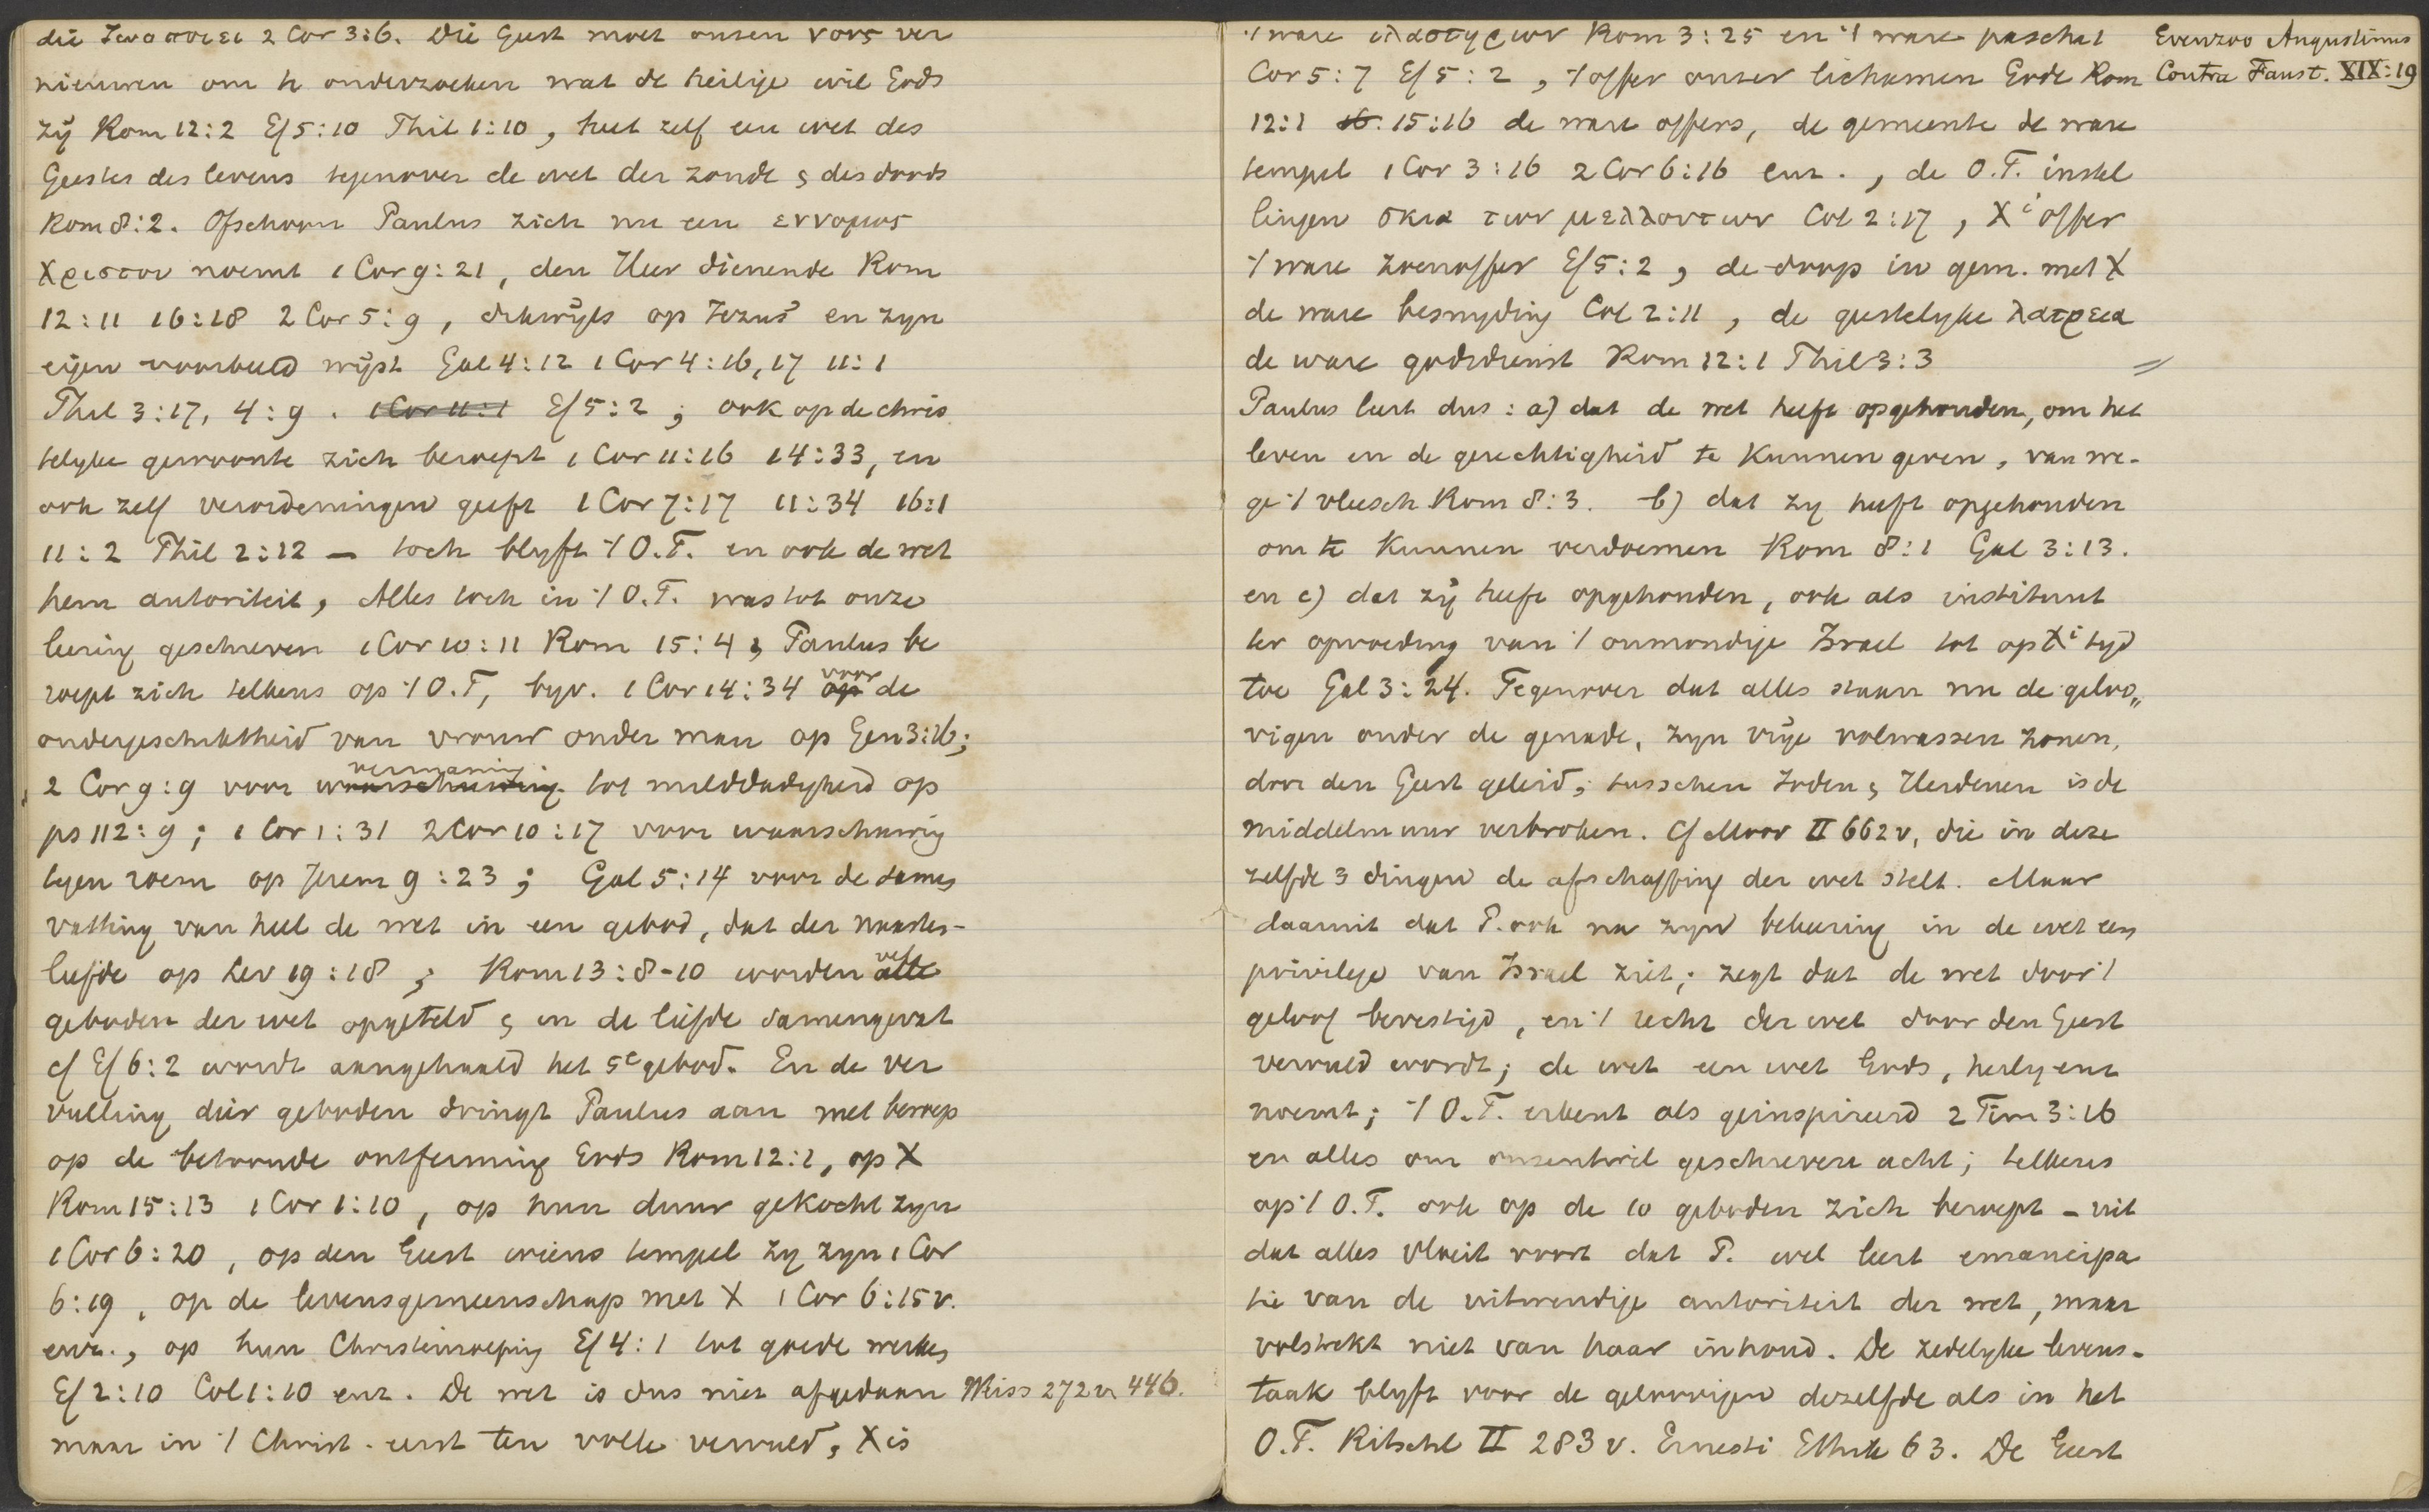 die ζωοποιει 2 Cor 3:6. Die Geest moet onsen νους ver
nieuwen om te onderzoeken wat de heilige wil Gods
zij Rom 12:2 Ef 5:10 Phil 1:10, heet zelf een wet des
Geestes des levens tegenover de wet der zonde & des doods
Rom 8:2. Ofschoon Paulus zich nu een εννομος
Χριστου noemt 1 Cor 9:21, den Heer dienende Rom
12:11 16:18 2 Cor 5:9, dikwijls op Jezus en zyn
eigen voorbeeld wijst Gal 4:12 1 Cor 4:16,17 11:1
Phil 3:17, 4:9. 1 Cor 11:1 Ef 5:2; ook op de chris
telyke gewoonte zich beroept 1 Cor 11:16 14:33, en
ook zelf verordeningen geeft 1 Cor 7:17 11:34 16:1
11:2 Phil 2:12 — toch blyft 't O.T. en ook de wet
hem autoriteit, Alles toch in 't O.T. was tot onze
leering geschreven 1 Cor 10:11 Rom 15:4 & Paulus be
roept zich telkens op 't O.T, byv. 1 Cor 14:34 op voor de
ondergeschiktheid van vrouw onder man op Gen 3:16;
2 Cor 9:9 voor waarschuwing vermaning tot milddadigheid op
ps 112:9; 1 Cor 1:31 2 Cor 10:17 voor waarschuwing
tegen roem op Jerem 9:23; Gal 5:14 voor de samen
vatting van heel de wet in een gebod, dat der naasten-
liefde op Lev 19:18; Rom 13:8-10 worden alle vele
geboden der wet opgeteld & in de liefde samengevat
cf Ef 6:2 wordt aangehaald het 5e gebod. En de ver
vulling dier geboden dringt Paulus aan met beroep
op de betoonde ontferming Gods Rom 12:1, op X
Rom 15:13 1 Cor 1:10, op hun duur gekocht zyn
1 Cor 6:20, op den Geest wiens tempel zy zyn 1 Cor
6:19, op de levensgemeenschap met X 1 Cor 6:15v.
enz., op hun Christenroeping Ef 4:1 tot goede werken
Ef 2:10 Col 1:10 enz. De wet is dus niet afgedaan Weiss 272v. 446.
maar in 't Christ. eerst ten volle vervuld, X is
't ware ιλαστηριον Rom 3:25 en 't ware pascha 1
Cor 5:7 Ef 5:2, 't offer onzer lichamen Gode Rom
12:1 16. 15:16 de ware offers, de gemeente de ware
tempel 1 Cor 3:16 2 Cor 6:16 enz., de O.T. instel
lingen σκια των μελλοντων Col 2:17, Xi offer
't ware zoenoffer Ef 5:2, de doop in gem. met X
de ware besnyding Col 2:11, de geestelyke λατρεια
de ware godsdienst Rom 12:1 Phil 3:3
Evenzoo Augustinus
Contra Faust. XIX:19
Paulus leert dus: a) dat de wet heeft opgehouden, om het
leven en de gerechtigheid te kunnen geven, van we-
ge 't vleesch Rom 8:3. b) dat zy heeft opgehouden
om te kunnen verdoemen Rom 8:1 Gal 3:13.
en c) dat zij heeft opgehouden, ook als instituut
ter opvoeding van 't onmondige Israel tot op Xi tyd
toe Gal 3:24. Tegenover dat alles staan nu de geloo„
vigen onder de genade, zyn vrije volwassen zonen,
door den Geest geleid; tusschen Joden & Heidenen is de
middelmuur verbroken. Cf Moor II 662v, die in deze
zelfde 3 dingen de afschaffing der wet stelt. Maar
daaruit dat P. ook na zyn bekeering in de wet een
privilege van Israel ziet; zegt dat de wet door 't
geloof bevestigd, en 't recht der wet door den Geest
vervuld wordt; de wet een wet Gods, heilig enz
noemt; 't O.T. erkent als geinspireerd 2 Tim 3:16
en alles om onzentwil geschreven acht; telkens
op 't O.T. ook op de 10 geboden zich beroept — uit
dat alles vloeit voort dat P. wel leert emancipa
tie van de uitwendige autoriteit der wet, maar
volstrekt niet van haar inhoud. De zedelyke levens-
taak blyft voor de geloovigen dezelfde als in het
O.T. Ritschl II 283v. Ernesti Ethik 63. De Geest